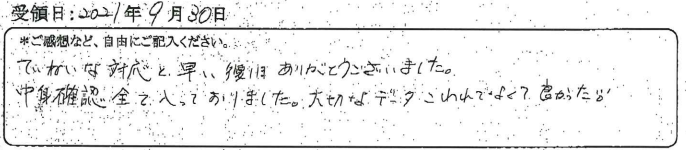 受領日：2021年9月30日
＊ご感想など、自由にご記入ください。
ていねいな対応と早い復旧ありがとうございました。
中身確認全て入っておりました。大切なデータこわれてなくて良かった